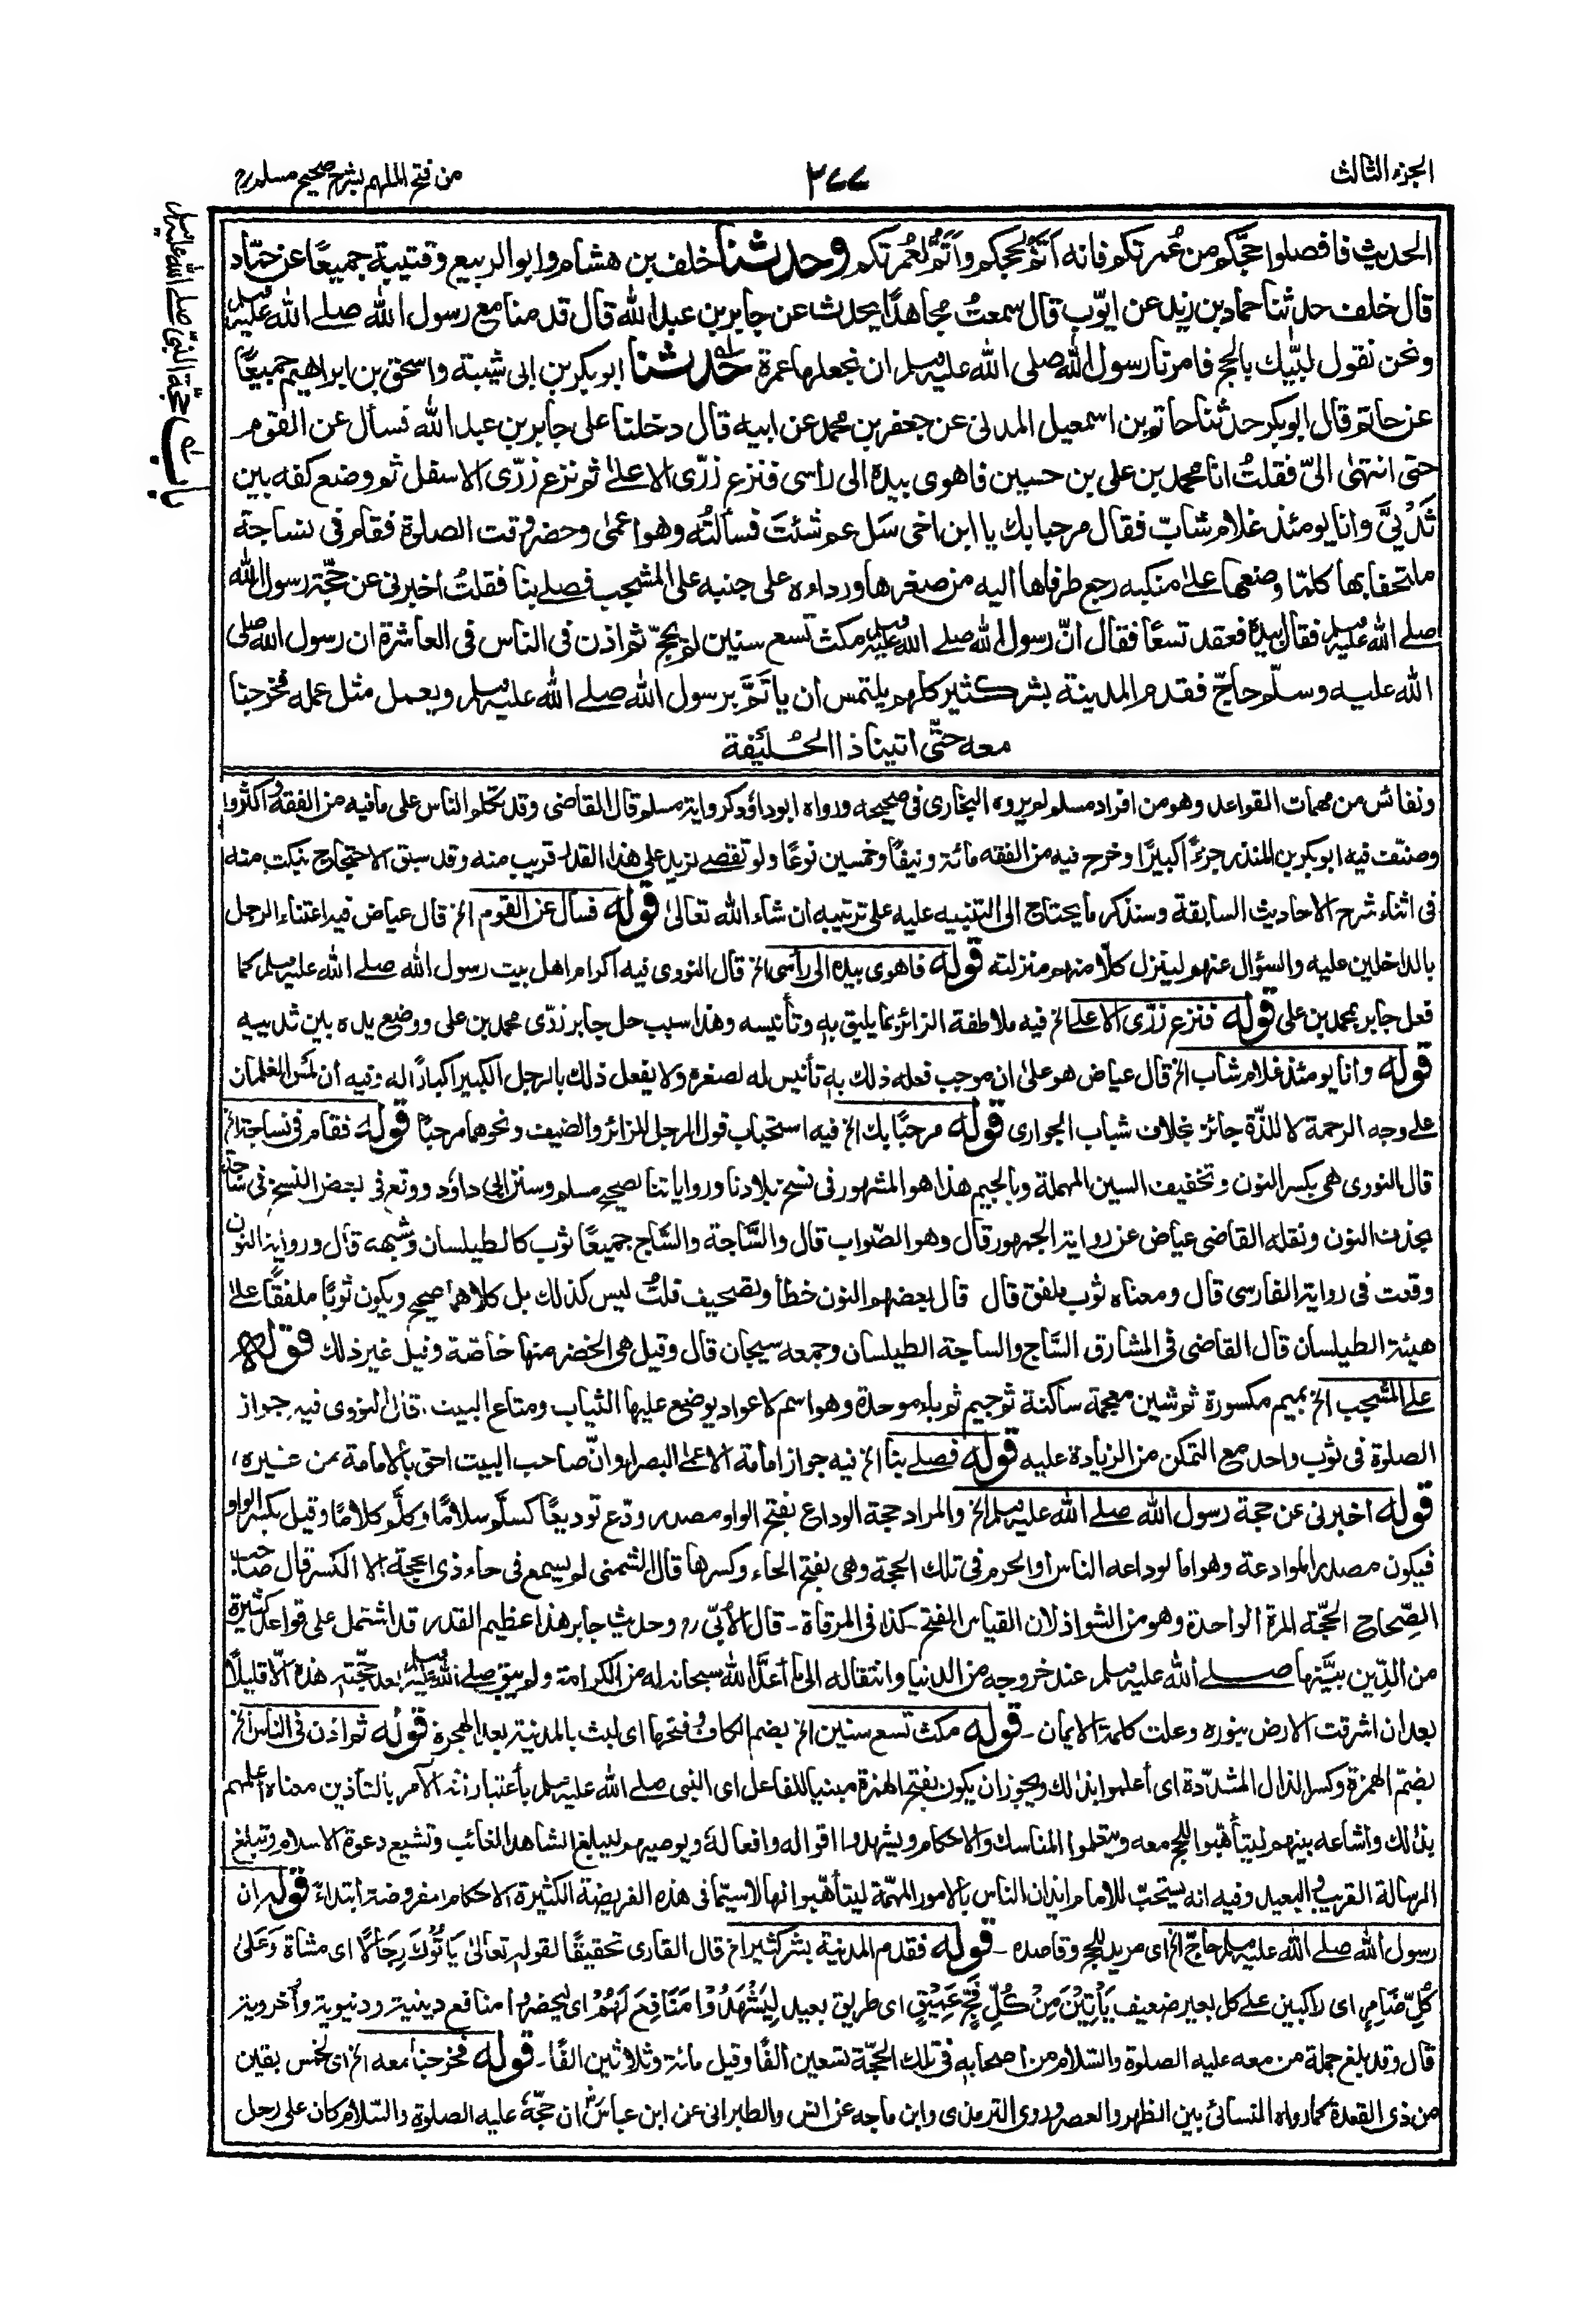 الجزء الثالث
٢٧٧
من فتح الملهم بشرح صحيح مسلم رح
باب حجّة النبيّ صلے اللّٰه عليه وسلم
الحديث فافصلوا حجّكم من عُمرتكم فانه اَتَمُّ لحجكم واَتَمُّ لعُمرتكم وحدثنا خلف بن هشام وابو الربيع وقتيبة جميعًا عن حمّاد
قال خلف حدثنا حماد بن زيد عن ايّوب قال سمعتُ مجاهدًا يحدث عن جابر بن عبد اللّٰه قال قدمنا مع رسول اللّٰه صلے اللّٰه عليه وسلم
ونحن نقول لبّيك بالحج فامرنا رسول اللّٰه صلى اللّٰه عليه وسلم ان نجعلها عمرة حدثنا ابو بكر بن ابى شيبة واسحٰق بن ابراهيم جميعًا
عن حاتم قال ابو بكر حدثنا حاتم بن اسمعيل المدنى عن جعفر بن محمد عن ابيه قال دخلنا على جابر بن عبد اللّٰه فسأل عن القوم
حتى انتهٰى الىّ فقلتُ انا محمد بن على بن حسين فاهوى بيده الى رأسى فنزع زرّى الاعلىٰ ثم نزع زرّى الاسفل ثم وضع كفه بين
ثَدْيَىَّ وانا يومئذ غلام شابّ فقال مرحبا بك يا ابن اخى سَل عم شئتَ فسألتُه وهو اعمىٰ وحضر وقت الصلوة فقام فى نساجة
ملتحفا بها كلما وضعها علىٰ منكبه رجع طرفاها اليه من صغرها ورداءه على جنبه على المشجب فصلے بنا فقلتُ اخبرنى عن حَجّة رسول اللّٰه
صلے اللّٰه عليه وسلم فقال بيده فعقد تسعًا فقال انّ رسول اللّٰه صلے اللّٰه عليه وسلم مكث تسع سنين لم يحجّ ثم اذن فى الناس فى العاشرة ان رسول اللّٰه صلى
اللّٰه عليه وسلّم حاجّ فقدم المدينة بشر كثير كلهم يلتمس ان ياتَمَّ برسول اللّٰه صلے اللّٰه عليه وسلم ويعمل مثل عمله فخرجنا
معه حتّى اتينا ذا الحُلَيْفة
ونفائس من مهمات القواعد وهو من افراد مسلم لم يروه البخارى فى صحيحه ورواه ابو داؤد كرواية مسلم قال القاضى وقد تكلم الناس على ما فيه من الفقه واكثروا
وصنّف فيه ابو بكر بن المنذر جزءًا كبيرًا وخرج فيه من الفقه مائة ونيفًا وخمسين نوعًا ولو تقصے لزيد على هذا القدر قريب منه وقد سبق الاحتجاج بنكت منه
فى اثناء شرح الاحاديث السابقة وسنذكر ما يحتاج الى التنبيه عليه على ترتيبه ان شاء اللّٰه تعالىٰ قوله فسأل عن القوم الخ قال عياض فيه اعتناء الرجل
بالداخلين عليه والسؤال عنهم لينزل كلّا منهم منزلته قوله فاهوى بيده الى رأسى الخ قال النووى فيه اكرام اهل بيت رسول اللّٰه صلے اللّٰه عليه وسلم كما
فعل جابر بمحمد بن على قوله فنزع زرّى الاعلے الخ فيه ملاطفة الزائر بما يليق به وتأنيسه وهذا سبب حل جابر زرّى محمد بن على ووضع يده بين ثدييه
قوله وانا يومئذ غلام شاب الخ قال عياض هو علىٰ ان موجب فعله ذلك به تأنيس له لصغره ولا يفعل ذلك بالرجل الكبير اكبارًا له وفيه ان لمس الغلمان
علے وجه الرحمة لا للذّة جائز بخلاف شباب الجوارى قوله مرحبًا بك الخ فيه استحباب قول الرجل للزائر والضيف ونحوهما مرحبًا قوله فقام فى نساجة الخ
قال النووى هى بكسر النون وتخفيف السين المهملة وبالجيم هذا هو المشهور فى نسخ بلادنا ورواياتنا لصحيح مسلم وسنن ابى داؤد ووقع فى بعض النسخ فى ساجة
بحذف النون ونقله القاضى عياض عن رواية الجمهور قال وهو الصّواب قال والسَّاجة والسَّاج جميعًا ثوب كالطيلسان وشبهه قال ورواية النون
وقعت فى رواية الفارسى قال ومعناه ثوب ملفق قال قال بعضهم النون خطأ وتصحيف قلتُ ليس كذلك بل كلاهما صحيح ويكون ثوبًا ملفقًا علىٰ
هيئة الطيلسان قال القاضى فى المشارق السَّاج والساجة الطيلسان وجمعه سيجان قال وقيل هى الخضر منها خاصّة وقيل غير ذلك قوله
على المشجب الخ بميم مكسورة ثم شين معجمة ساكنة ثم جيم ثم باء موحدة وهو اسم لاعواد يوضع عليها الثياب ومتاع البيت. قال النووى فيه جواز
الصلوة فى ثوب واحد مع التمكن من الزيادة عليه قوله فصلے بنا الخ فيه جواز امامة الاعمےٰ البصراء وانّ صاحب البيت احق بالامامة من غيره،
قوله اخبرنى عن حجة رسول اللّٰه صلے اللّٰه عليه وسلم الخ والمراد حجة الوداع بفتح الواو مصدر ودّع توديعًا كسلّم سلامًا وكلّم كلامًا وقيل بكسر الواو
فيكون مصدر الموادعة وهو اما لوداعه الناس او الحرم فى تلك الحجة وهى بفتح الحاء وكسرها قال الشمنى لم يسمع فى حاء ذى الحجة الا الكسر قال صاحب
الصِّحاح الحِجّة المرة الواحدة وهو من الشواذ لان القياس الفتح ـ كذا فى المرقاة ـ قال الأبّى رح وحديث جابر هذا عظيم القدر قد اشتمل على قواعد كثيرة
من الدِّين بيَّنها صلے اللّٰه عليه وسلم عند خروجه من الدنيا وانتقاله الى ما أعدَّ اللّٰه سبحانه له من الكرامة ولم يبق صلے اللّٰه عليه وسلم بعد حجّته هذه الّا قليلًا
بعد ان اشرقت الارض بنوره وعلت كلمة الايمان ـ قوله مكث تسع سنين الخ بضم الكاف وفتحها اى لبث بالمدينة بعد الهجرة قوله ثم اذن فى الناس الخ
بضمّ الهمزة وكسر الذال المشدّدة اى أعلموا بذلك ويجوز ان يكون بفتح الهمزة مبنيا للفاعل اى النبى صلے اللّٰه عليه وسلم بأعتبار انه الآمر بالتأذين معناه اعلمهم
بذلك واشاعه بينهم ليتأهّبوا للحج معه ويتعلموا المناسك والاحكام ويشهدوا اقواله وافعاله ويوصيهم ليبلغ الشاهد الغائب وتشيع دعوة الاسلام وتبلغ
الرسالة القريب والبعيد وفيه انه يستحبّ للامام ايذان الناس بالامور المهمّة ليتأهّبوا لها لاسيّما فى هذه الفريضة الكثيرة الاحكام المفروضة ابتداءً قوله ان
رسول اللّٰه صلے اللّٰه عليه وسلم حاجّ الخ اى مريد للحج وقاصده ـ قوله فقدم المدينة بشر كثير الخ قال القارى تحقيقًا لقوله تعالىٰ يَاتُوْكَ رِجَالًا اى مشاة وَعَلىٰ
كُلِّ ضَامِرٍ اى راكبين علے كل بعير ضعيف يَأْتِيْنَ مِنْ كُلِّ فَجٍّ عَمِيْقٍ اى طريق بعيد لِيَشْهَدُوْا مَنَافِعَ لَهُمْ اى ليحضروا منافع دينية ودنيوية وأخروية
قال وقد بلغ جملة من معه عليه الصلوة والسّلام من اصحابه فى تلك الحجّة تسعين الفًا وقيل مائة وثلاثين الفًا ـ قوله فخرجنا معه الخ اى لخمس بقين
من ذى القعدة كما رواه النسائى بين الظهر والعصر وروى الترمذى وابن ماجه عن انس والطبرانى عن ابن عباس ان حجّه عليه الصلوة والسّلام كان على رحل